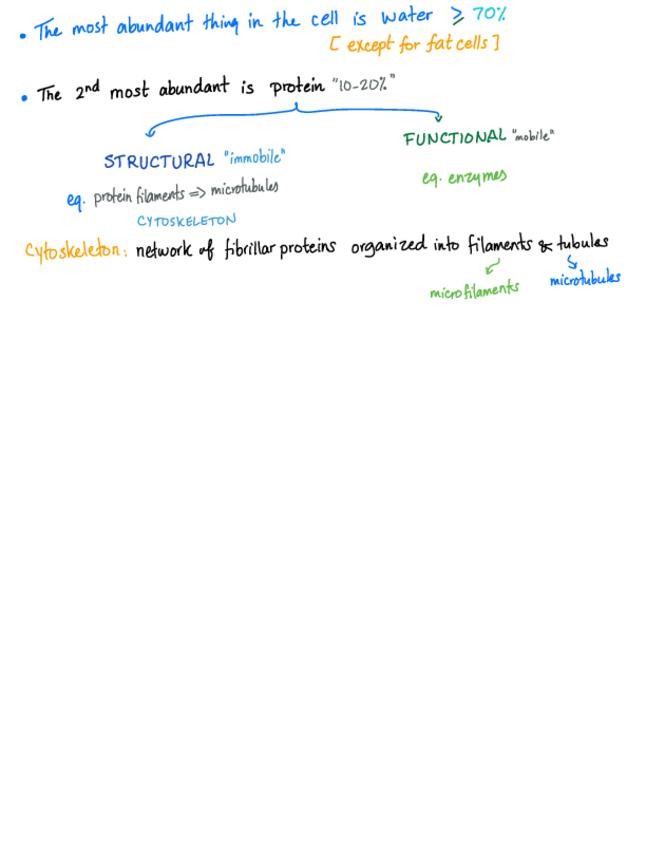 • The most abundant thing in the cell is water ≥ 70%
[except for fat cells]
• The 2nd most abundant is protein "10-20%"
FUNCTIONAL "mobile"
STRUCTURAL "immobile"
eg. enzymes
eg. protein filaments => microtubules
CYTOSKELETON
Cytoskeleton: network of fibrillar proteins organized into filaments & tubules
microfilaments microtubules